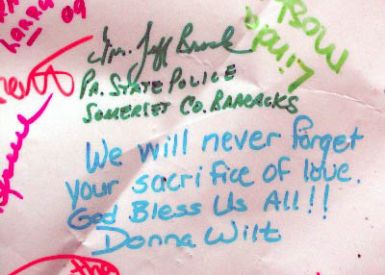 Tm. Jeff Brock
PA. STATE POLICE
SOMERSET CO. BARRACKS
We will never forget
your sacrifice of love.
God Bless Us All!!
Donna Wilt
09
the